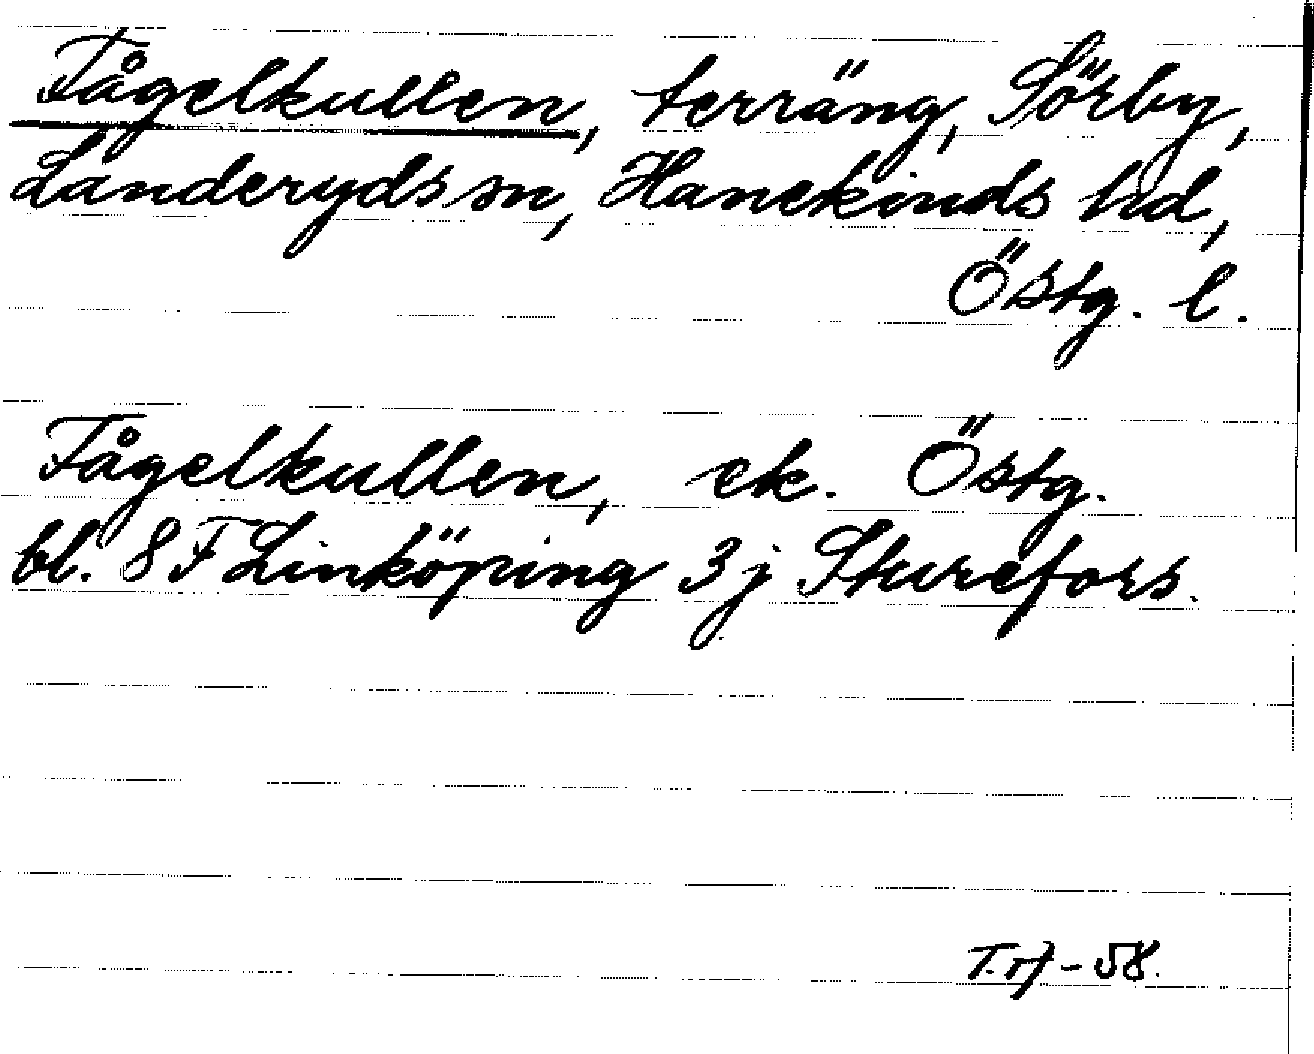 Fågelkullen, terräng, Sörby,
Landeryds sn, Hanekinds hd,
Östg. l.
Fågelkullen, ek. Östg.
bl. 8 F Linköping 3 j Sturefors.
-58.